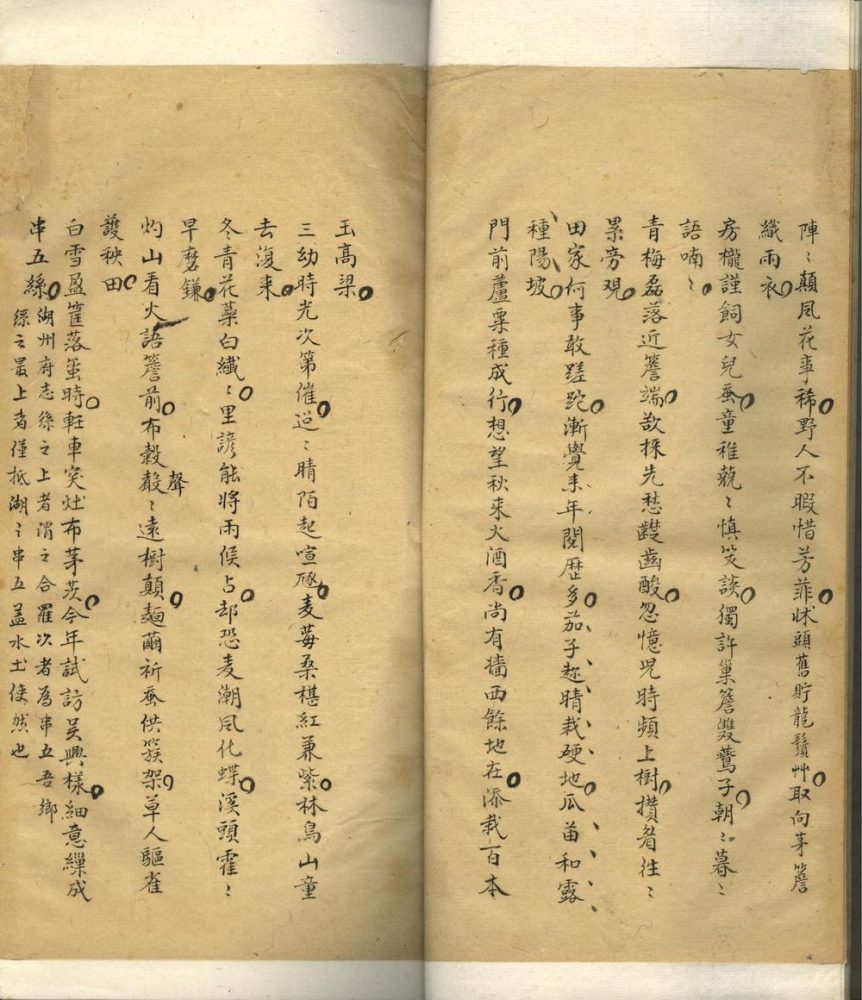 陣〻顛風花事稀野人不暇惜芳菲牀頭舊貯龍鬚艸取向茅簷
織雨衣
房櫳謹飼女兒蚕童稚藐〻慎笑談獨許巢簷雙鷰子朝〻暮〻
語喃〻
青梅磊落近簷端欲採先愁齼齒酸忽憶兒時頻上樹攢眉往〻
累旁觀
田家何事敢蹉跎漸覺来年閱歴多茄子趂晴栽硬地瓜苗和露
種陽坡
門前蘆粟種成行想望秋来火酒香尚有墻西餘地在添栽百本
玉高梁
三幼時光次第催迢〻晴陌起喧豗麦莓桑椹紅兼紫林鳥山童
去復来
冬青花蘂白纖〻里諺能將雨候占却恐麦潮風化蝶溪頭霍〻
早磨鎌
灼山看火語簷前布穀聲〻遠樹顛麺繭祈蚕供簇架草人驅雀
護秧田
白雪盈筐落蛍時軖車突灶布茅茨今年試訪吴興様細意繅成
串五絲 湖州府志絲之上者謂之合羅次者為串五吾鄉
絲之最上者僅抵湖之串五盖水土使然也